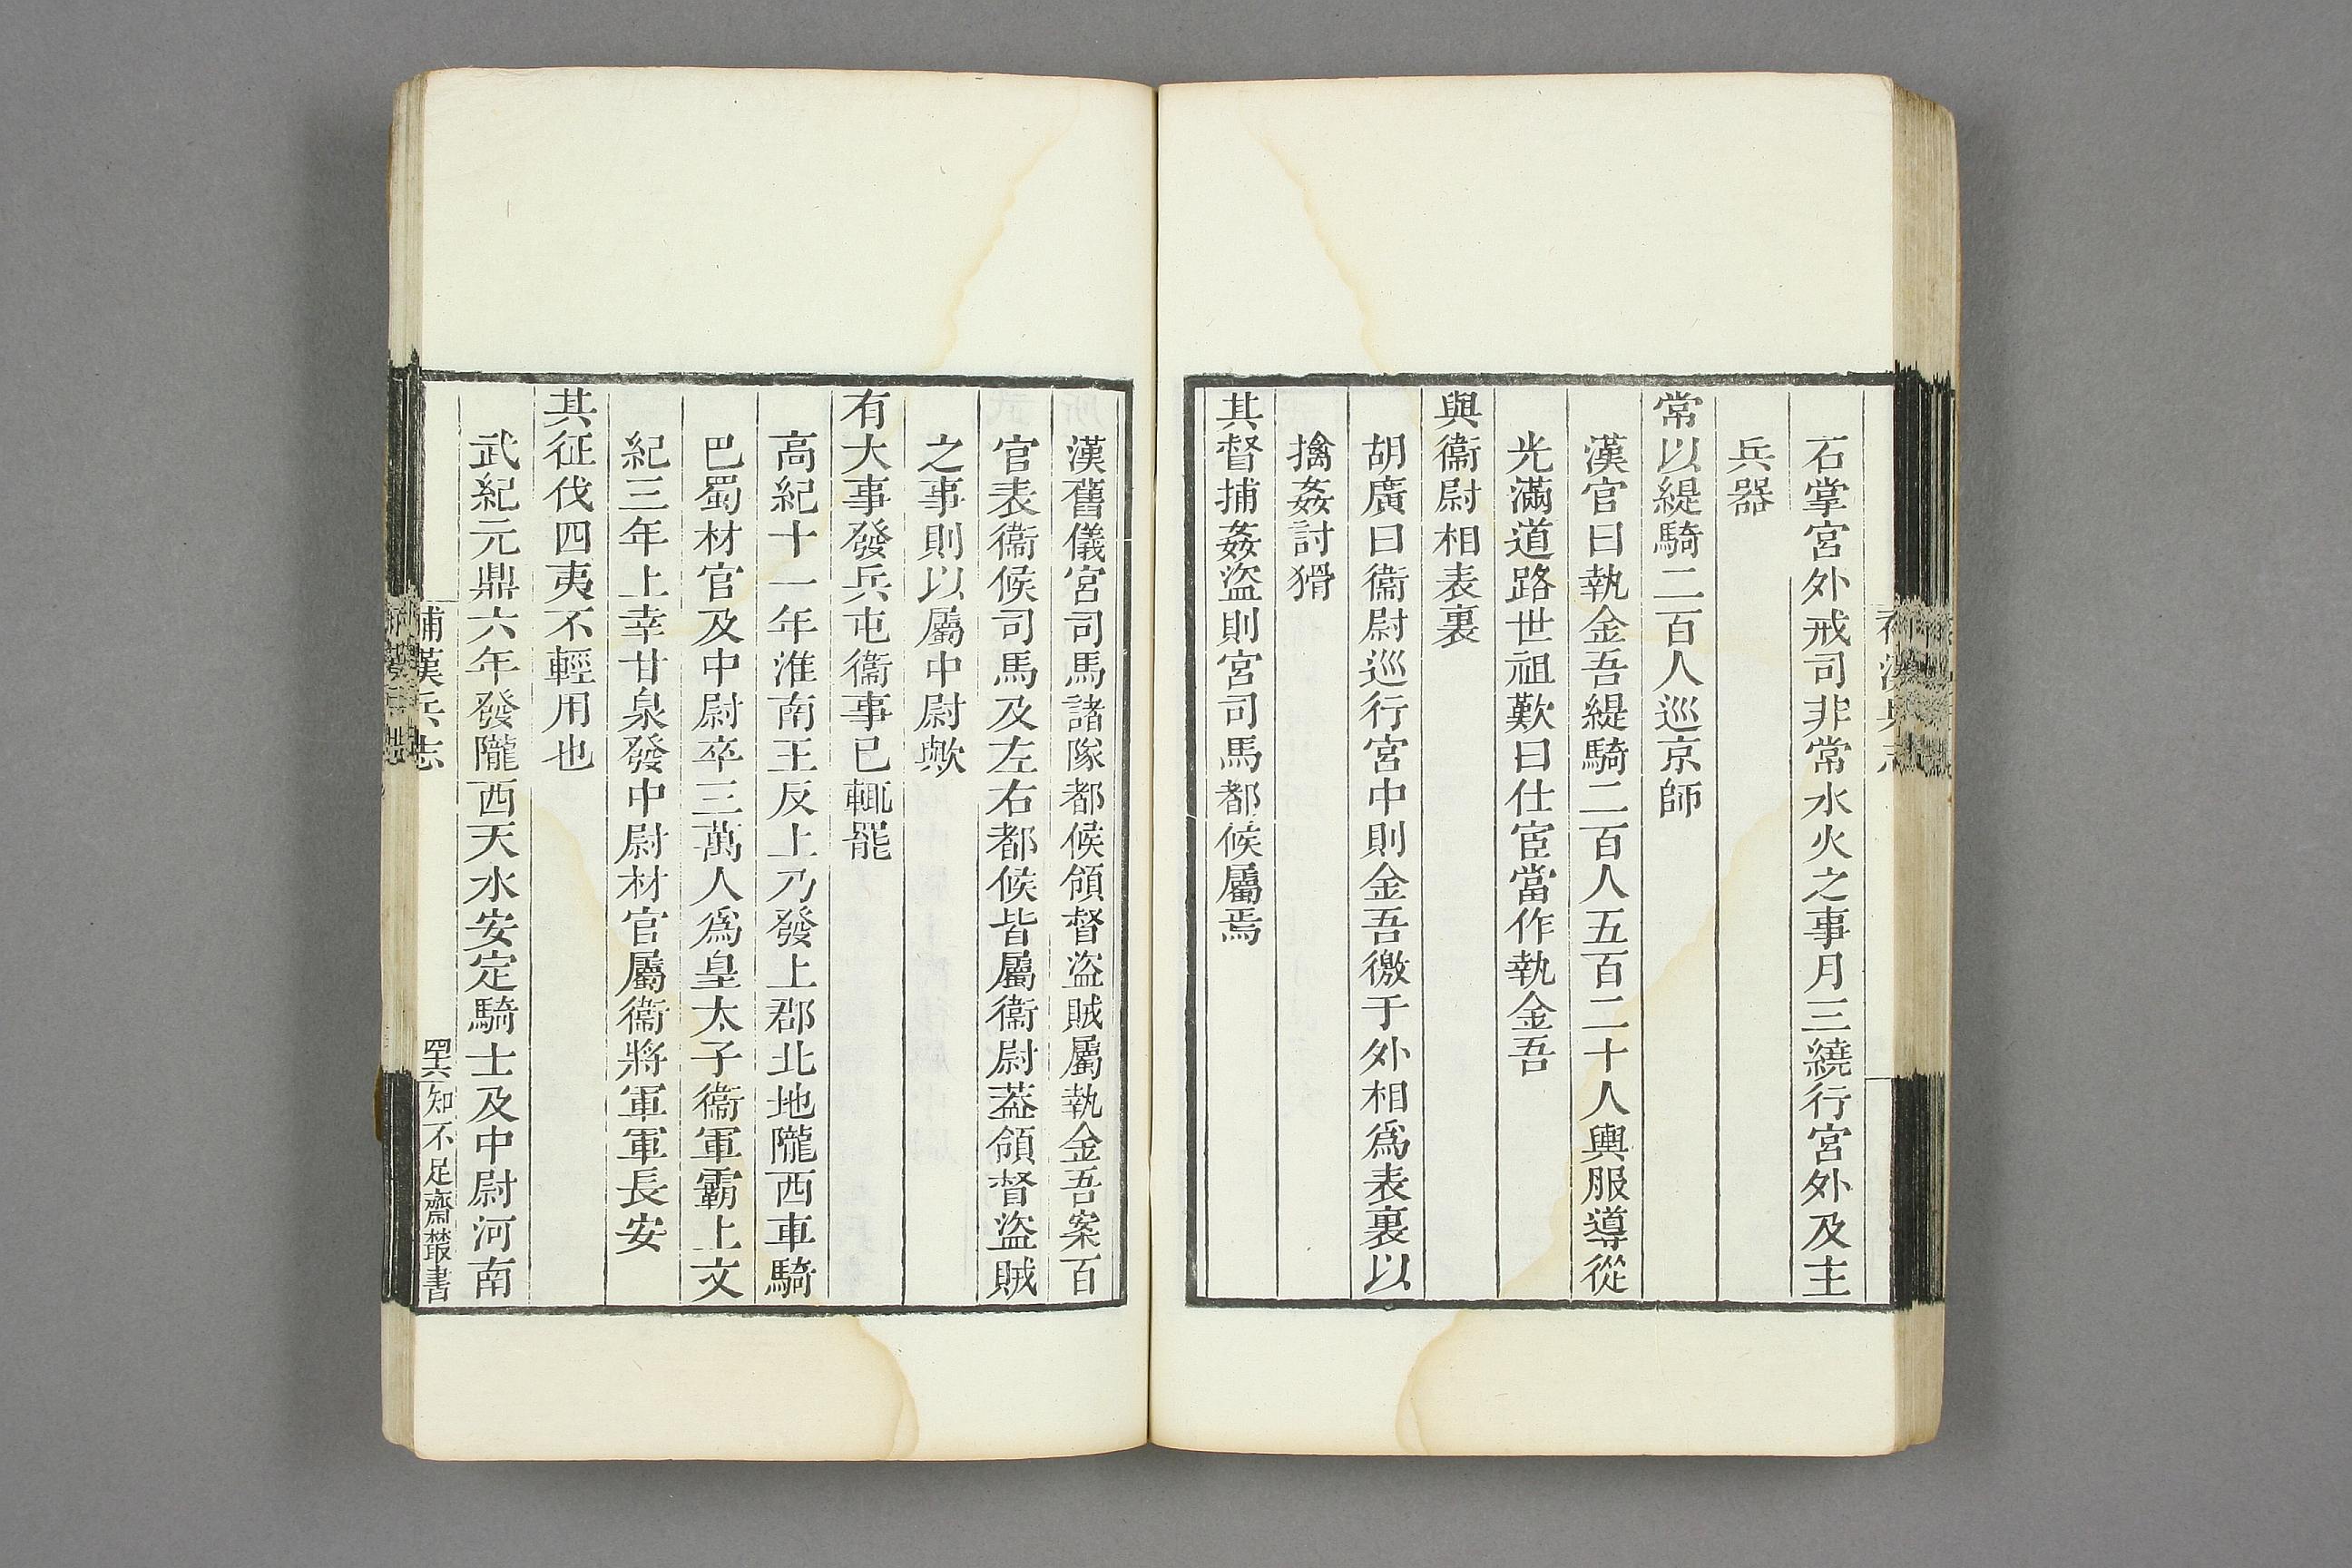 石掌宮外戒司非常水火之事月三繞行宮外及主
兵器
常以緹騎二百人巡京師
漢官曰執金吾緹騎二百人五百二十人輿服導從
光滿道路世祖歎曰仕宦當作執金吾
與衞尉相表裏
胡廣曰衞尉巡行宮中則金吾徼于外相爲表裏以
擒姦討猾
其督捕姦盜則宮司馬都候屬焉
漢舊儀宮司馬諸隊都候領督盜賊屬執金吾案百
官表衞候司馬及左右都候皆屬衞尉葢領督盜賊
之事則以屬中尉歟
有大事發兵屯衞事已輒罷
高紀十一年淮南王反上乃發上郡北地隴西車騎
巴蜀材官及中尉卒三萬人爲皇太子衞軍霸上文
紀三年上幸甘泉發中尉材官屬衞將軍軍長安
其征伐四夷不輕用也
武紀元鼎六年發隴西天水安定騎士及中尉河南
補漢兵志
四六
知不足齋叢書